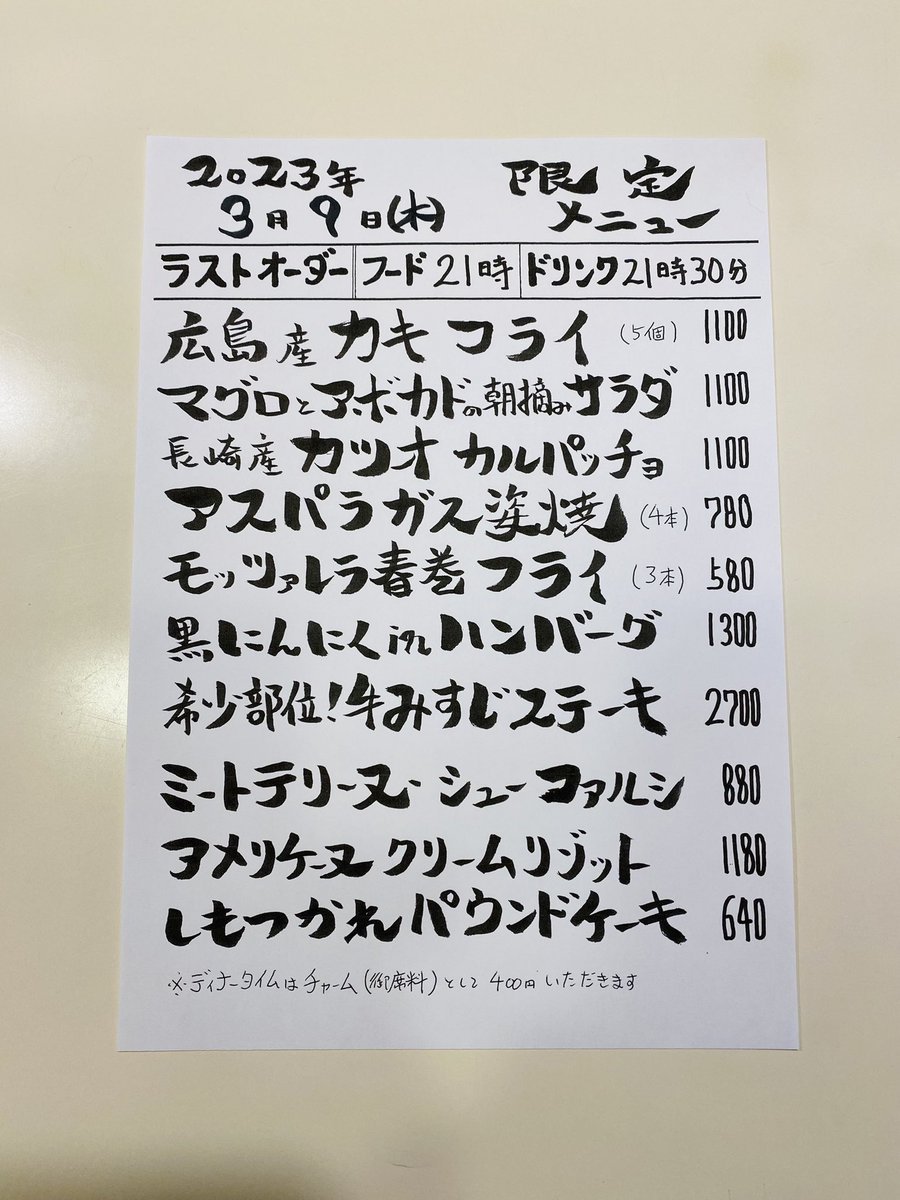 2023年 限定
3月9日(木) メニュー
ラストオーダー フード21時 ドリンク21時30分
広島産カキフライ(5個) 1100
マグロとアボカドの朝摘みサラダ 1100
長崎産カツオカルパッチョ 1100
アスパラガス姿焼(4本) 780
モッツァレラ春巻フライ(3本) 580
黒にんにくinハンバーグ 1300
希少部位!牛みすじステーキ 2700
ミートテリーヌ・シューファルシ 880
アメリケーヌクリームリゾット 1180
しもつかれパウンドケーキ 640
※ディナータイムはチャーム(御席料)として400円いただきます